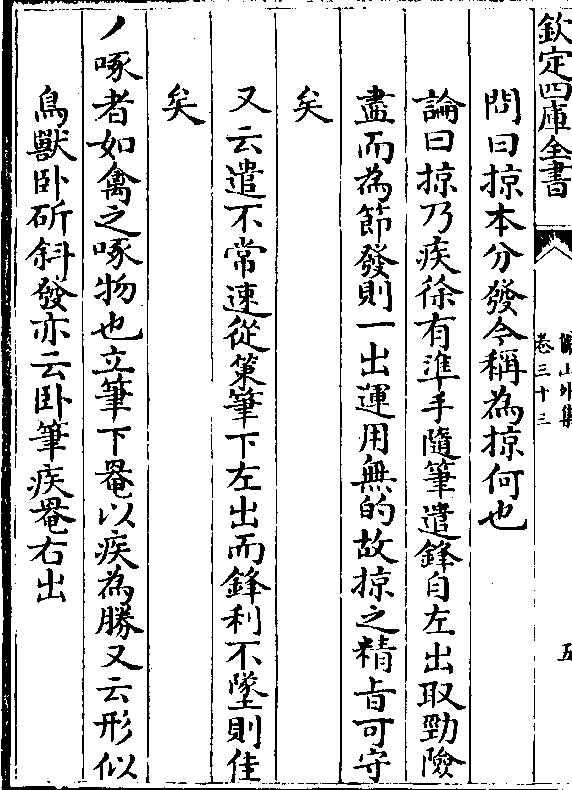 欽定四庫全書
卷三十三
五
問曰掠本分發今稱為掠何也
論曰掠乃疾徐有準手隨筆遣鋒自左出取勁險
盡而為節發則一出運用無的故掠之精旨可守
矣
又云遣不常速從策筆下左出而鋒利不墜則佳
矣
丿啄者如禽之啄物也立筆下罨以疾為勝又云形似
鳥獸卧斫斜發亦云卧筆疾罨右出